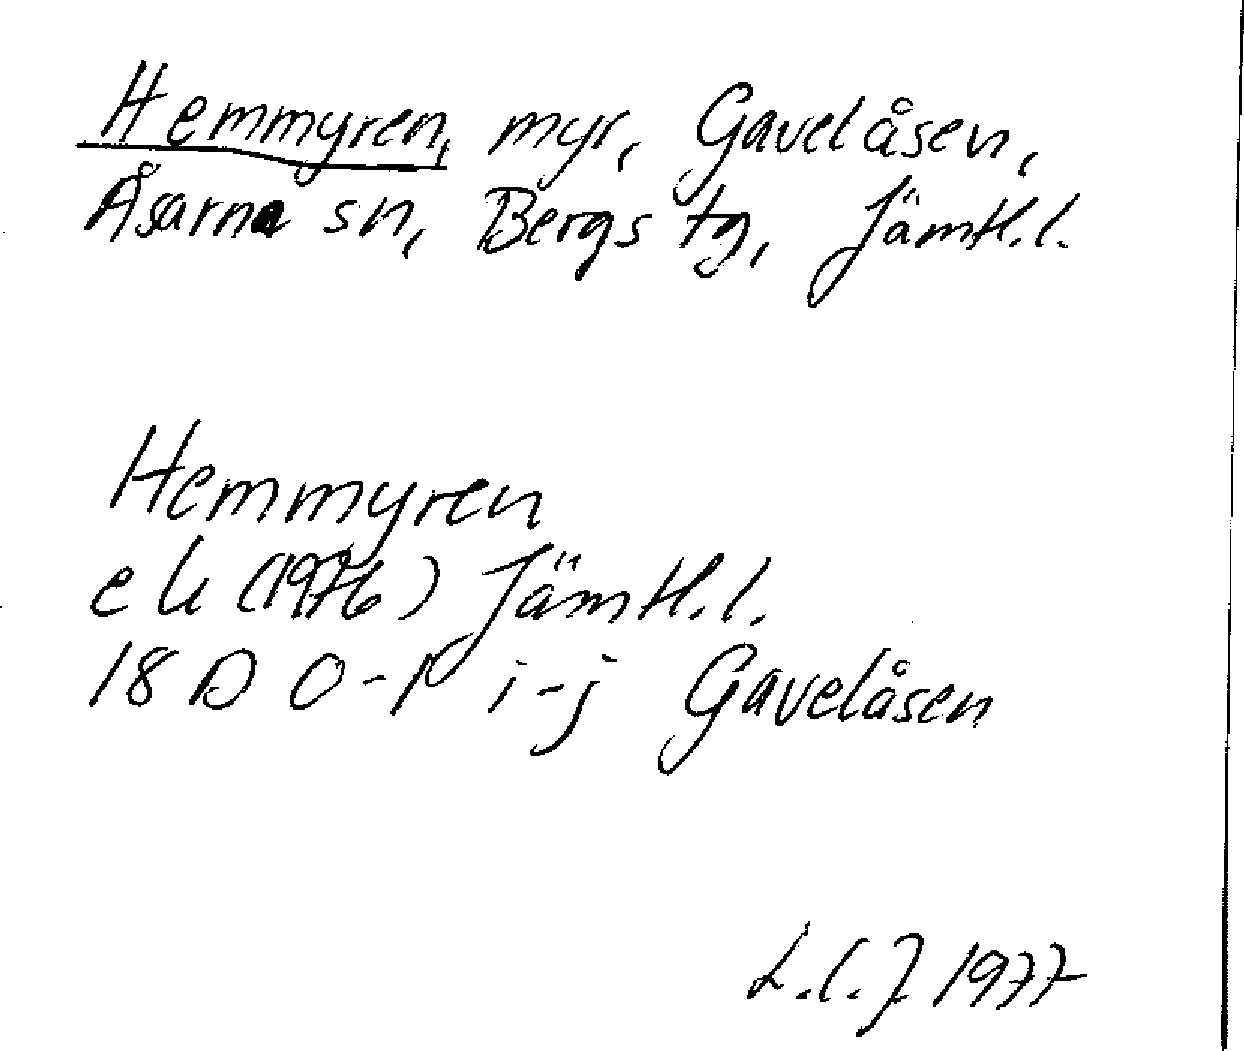 Hemmyren, myr, Gavelåsen,
Åsarna sn, Bergs tg, Jämtl.l.
Hemmyren
ek (1976) Jämtl.l.
18 D 0-1 i-j Gavelåsen
L.C.J. 1977